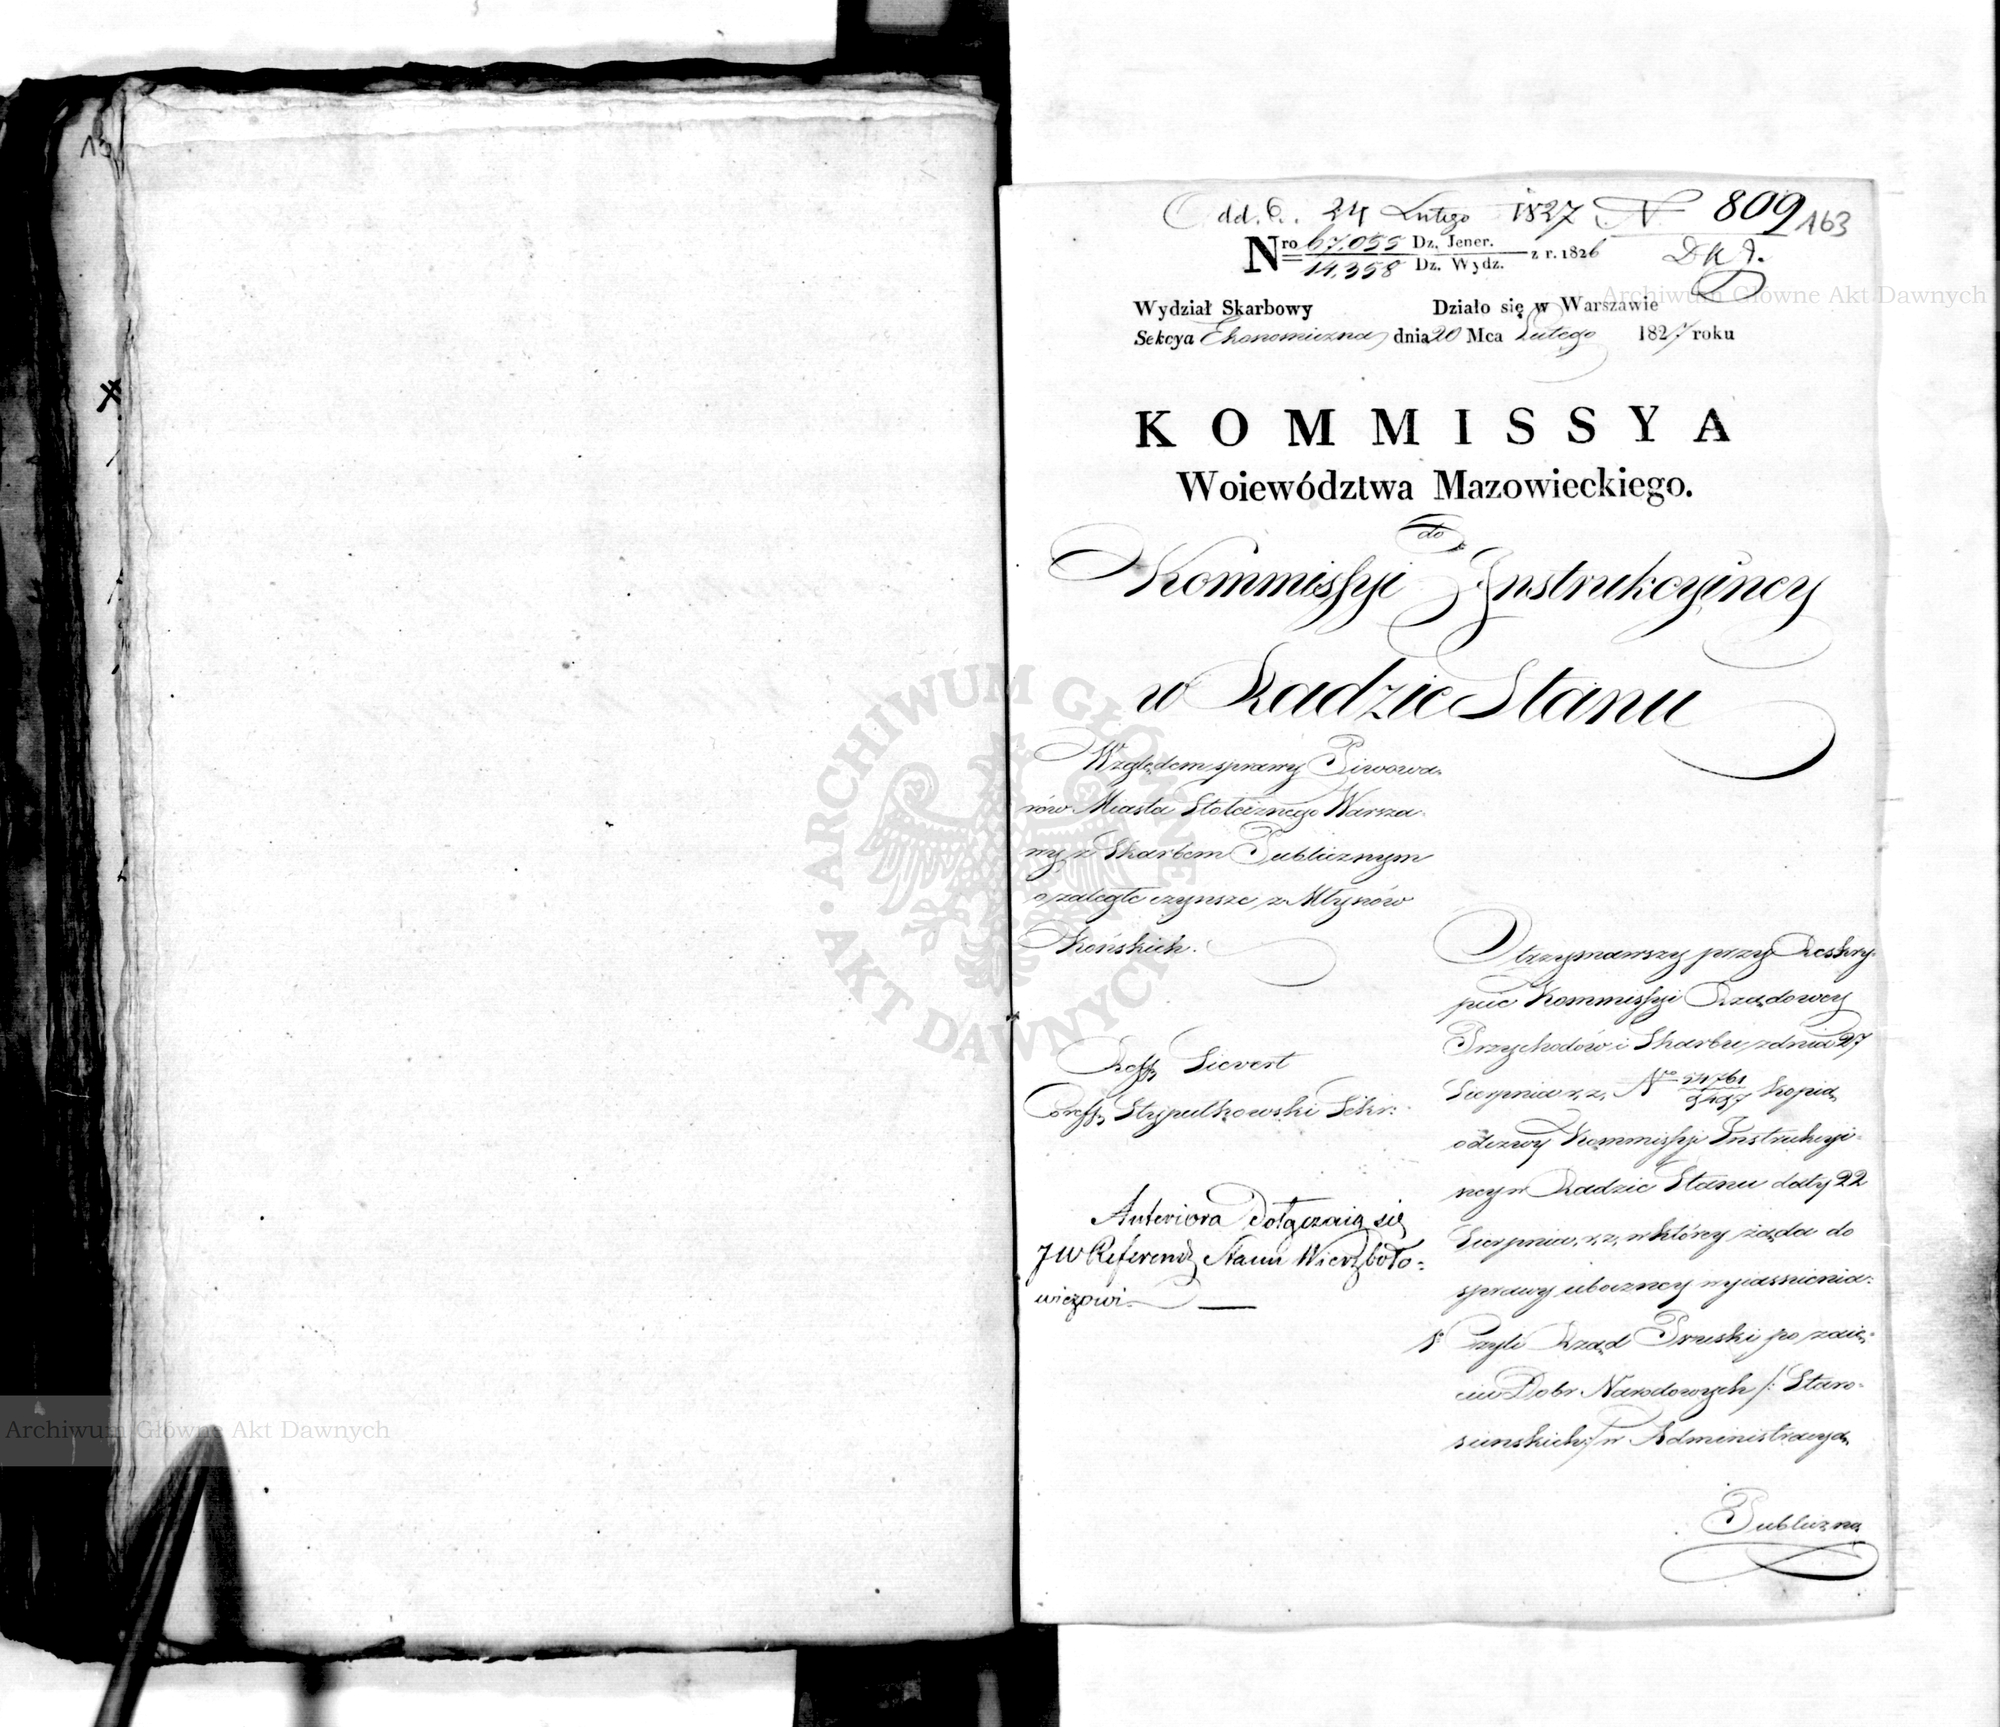 dd. 24 Lutego 1827 N 809
163
Nro 67,055 Dz. Jener.
14,358 Dz. Wydz. z r. 1826
D K J.
Wydział Skarbowy Działo się w Warszawie
Sekcya Ekonomiczna dnia 20 Mca Lutego 1827 roku
KOMMISSYA
Woiewództwa Mazowieckiego.
do
Kommissyi Instrukcyiney
w Radzie Stanu
Względem sprawy Piwowa-
rów Miasta Stołecznego Warsza-
wy z Skarbem Publicznym
o zaległe czynsze z Młynów
Końskich.
Reff. Sievert
Coreff. Stypułkowski Sekr:
Anteriora Dołączaią się
JW Referend. Stanu Wierzboło-
wiczowi.
Otrzymawszy przy Reskry-
pcie Kommissyi Rządowey
Przychodów i Skarbu z dnia 27
Sierpnia r. z. Nro 51761
Kopią
odezwy Kommissyi Instrukcyi-
ney w Radzie Stanu daty 22
Sierpnia, r, z, w którey żąda do
sprawy uboczney wyiaśnienia:
1o Czyli Rząd Pruski po zaię-
ciu Dobr Narodowych /: Staro-
scinskich :/ w Administracyą
Publiczną
Archiwum Główne Akt Dawnych
ARCHIWUM GŁÓWNE AKT DAWNYCH
Archiwum Główne Akt Dawnych